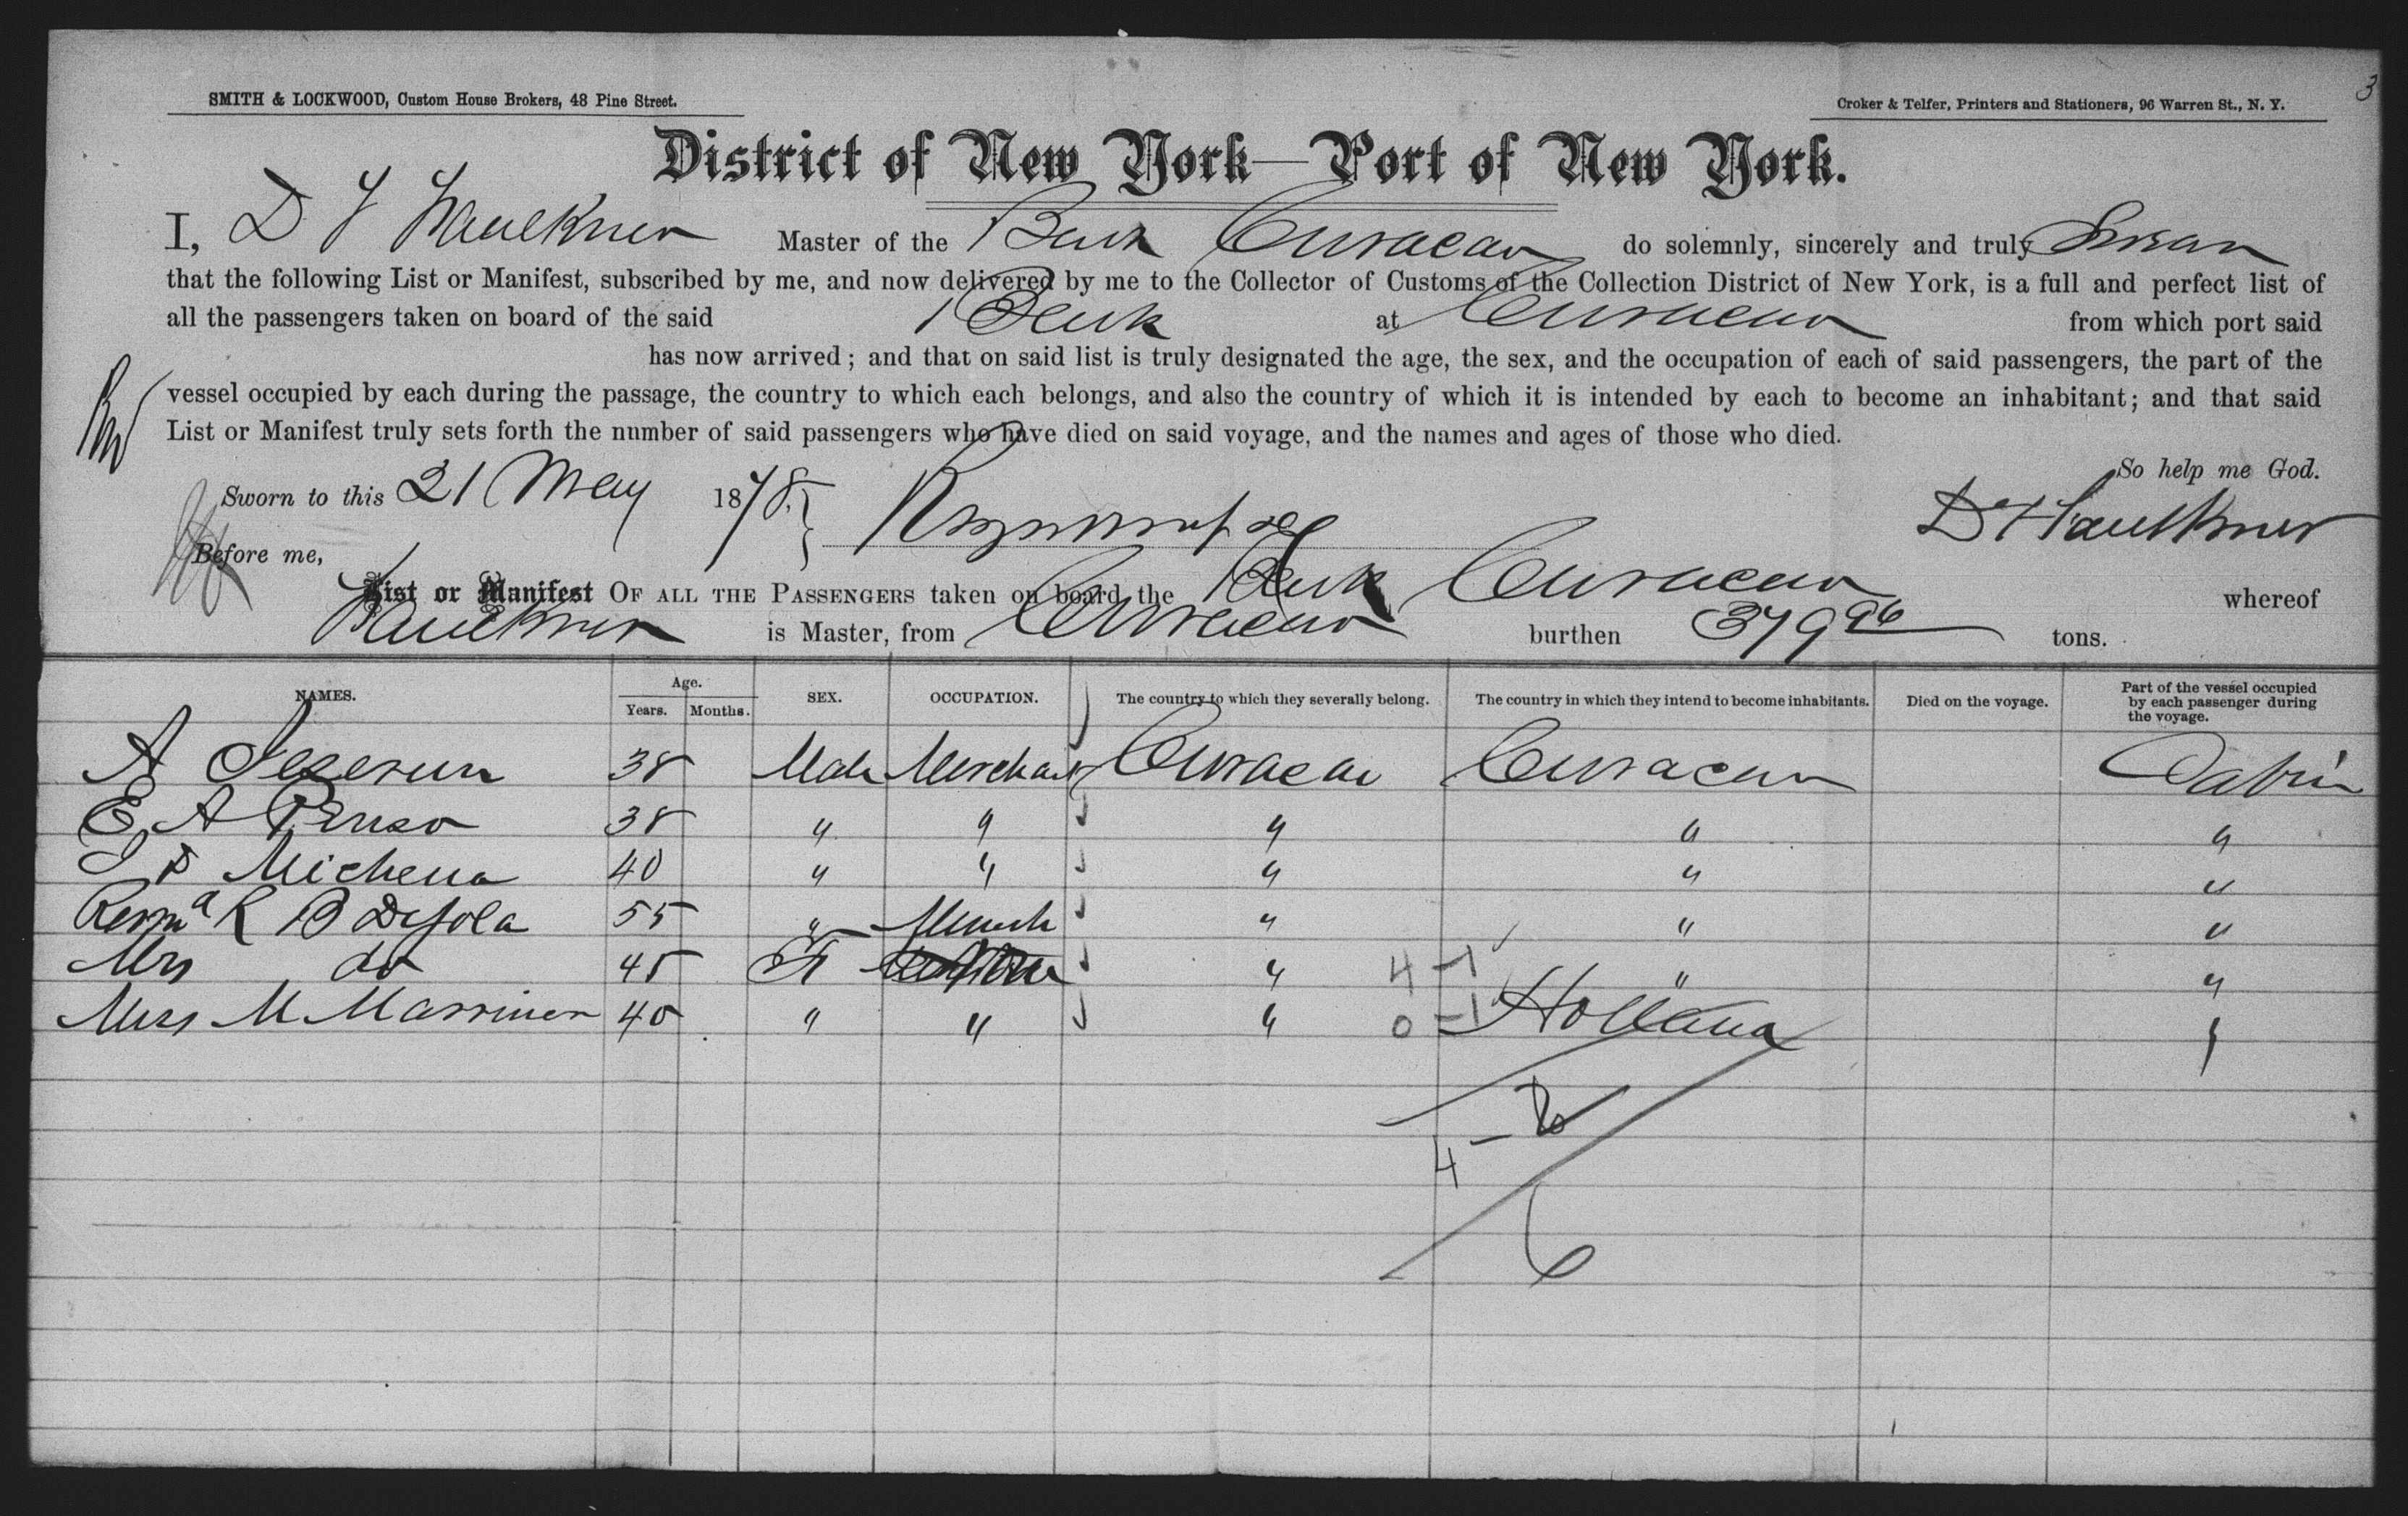 3
SMITH & LOCKWOOD, Custom House Brokers, 48 Pine Street.
Croker & Telfer, Printers and Stationers, 96 Warren St., N. Y.
District of New York—Port of New York.
I, D F Faulkner Master of the Bark Curacao do solemnly, sincerely and truly Swear
that the following List or Manifest, subscribed by me, and now delivered by me to the Collector of Customs of the Collection District of New York, is a full and perfect list of
all the passengers taken on board of the said Bark at Curacao from which port said
has now arrived; and that on said list is truly designated the age, the sex, and the occupation of each of said passengers, the part of the
vessel occupied by each during the passage, the country to which each belongs, and also the country of which it is intended by each to become an inhabitant; and that said
List or Manifest truly sets forth the number of said passengers who have died on said voyage, and the names and ages of those who died.
So help me God.
Sworn to this 21 May 1878, D F Faulkner
Before me,
List or Manifest OF ALL THE PASSENGERS taken on board the Bark Curacao whereof
Faulkner is Master, from Curacao burthen 379 96 tons.
NAMES. Age. Years. Months. SEX. OCCUPATION. The country to which they severally belong. The country in which they intend to become inhabitants. Died on the voyage. Part of the vessel occupied by each passenger during the voyage.
A Jeserun 38 Male Merchant Curacao Curacao Cabin
E A Penso 38 " " " " "
Michena 40 " " " " "
R B Desola 55 " " " "
Mrs do 45 F " " "
M Marriner 40 " " " Holland "
4 - 1
0 - 1
4 - 2
6